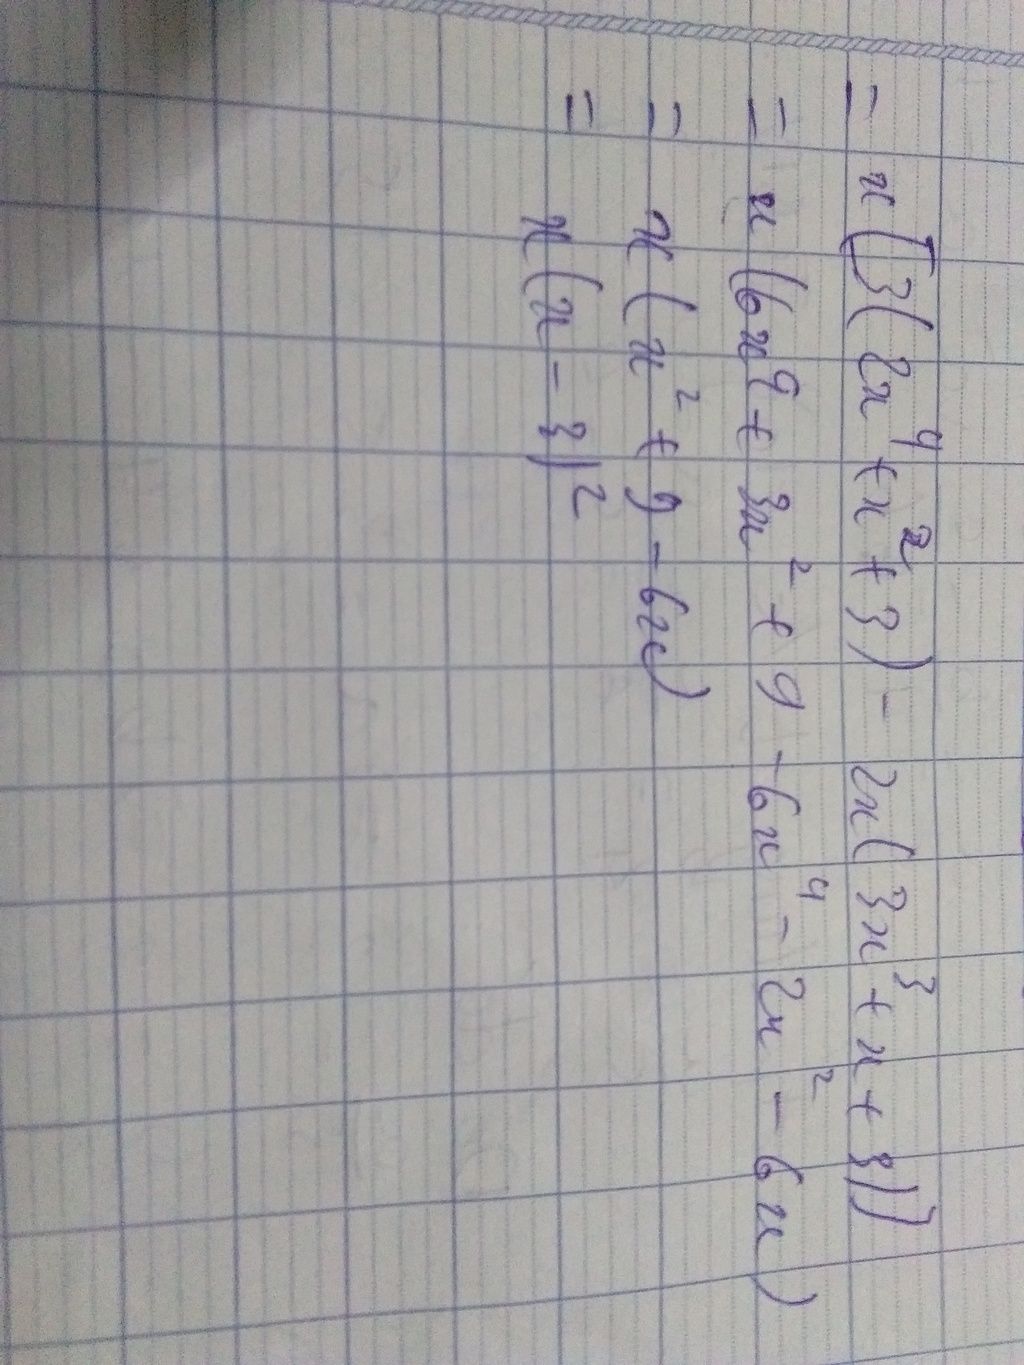 = x[3(2x⁴+x²+3) - 2x(3x³+x+3)]
= x(6x⁴+3x²+9-6x⁴-2x²-6x)
= x(x²+9-6x)
= x(x-3)²